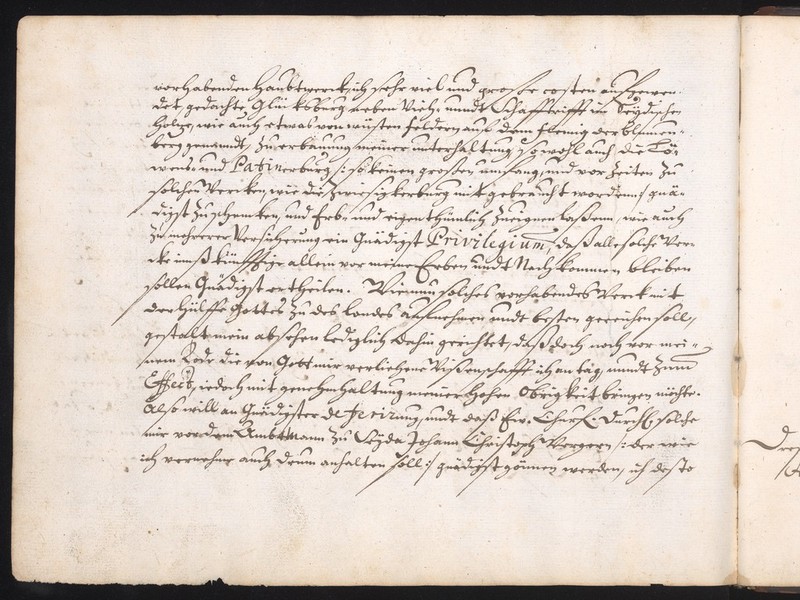 vorhabenden Haubtwerck, ich sehr viel und große costen aufgewen-
det, gedachte Glücksburg neben Vieh- unndt Schafftrifft in Seydischer
Holtze, wie auch etwas von wüsten feldern auf dem fleming der blumen-
berg genandt, zu erbauung meiner unterhaltung, so wohl auch die Lö-
wend- und Patinerburg /: so keinen großen umfang, und vor Zeiten zu
solchen Wercken, wie die Zwiesigkerburg mit gebraucht worden :/ gnä-
digst zu schencken, und Erb- und eigenthümlich zueignen laßenn, wie auch
zu mehrerer Versicherung ein Gnädigst Privilegium, daß alle solche Wer-
cke ins künfftige allein vor meine Erben undt Nachkommen bleiben
sollen Gnädigst ertheilen. Wann nun solches vorhabendes Werck mit
der Hülffe Gottes zu des Landes aufnehmen undt besten gereichen soll,
gestalt mein absehen lediglich dahin gerichtet, daß doch noch vor mei-
nem Tode die von Gott mir verliehene Wißenschafft ich an tag, unndt zum
Effect, iedoch mit genehmhaltung meiner Hohen Obrigkeit bringen möchte.
Also will an Gnädigster deferirung, undt daß Ew. Churf. Durchl. solche
mir vor dem Ambtmann zu Seyda Johann Christoph Bergern /: der wie
ich vernehme auch drum anhalten soll :/ gnädigst gönnen werden, ich desto